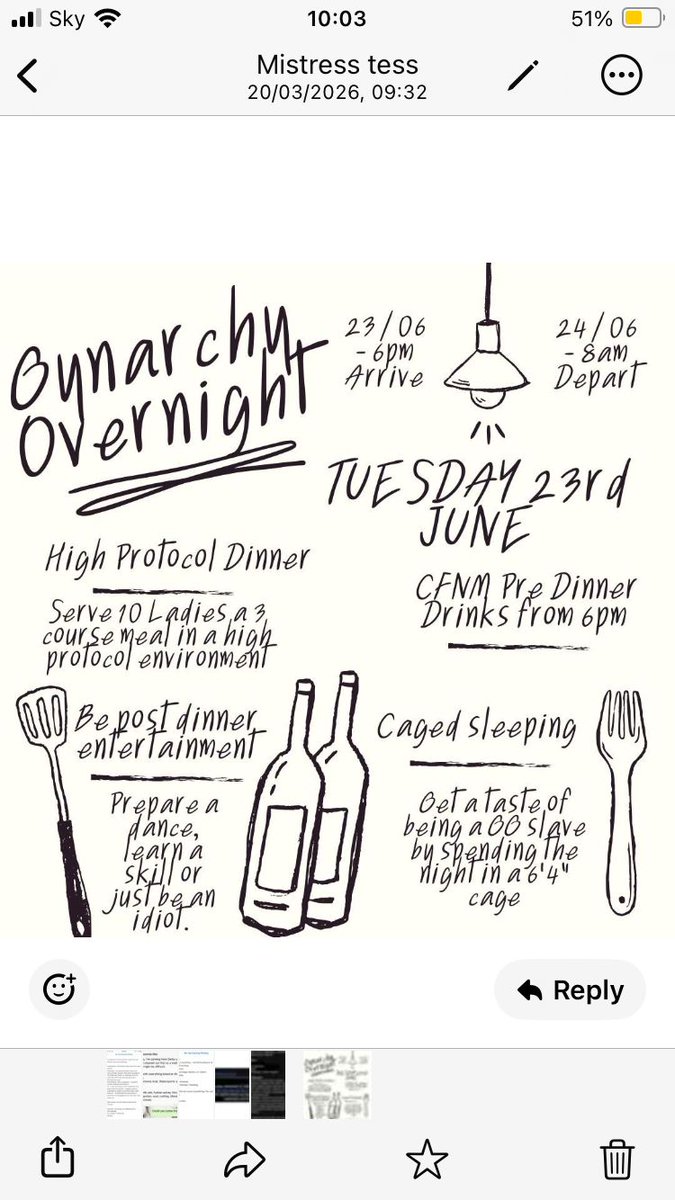 Sky
10:03
51%
Mistress tess
20/03/2026, 09:32
Gynarchy
Overnight
23/06
- 6pm
Arrive
24/06
- 8am
Depart
TUESDAY 23rd
JUNE
High Protocol Dinner
Serve 10 Ladies a 3
course meal in a high
protocol environment
CFNM Pre Dinner
Drinks from 6pm
Be post dinner
entertainment
Prepare a
dance,
learn a
skill or
just be an
idiot.
Caged sleeping
Get a taste of
being a GG slave
by spending the
night in a 6'4"
cage
Reply